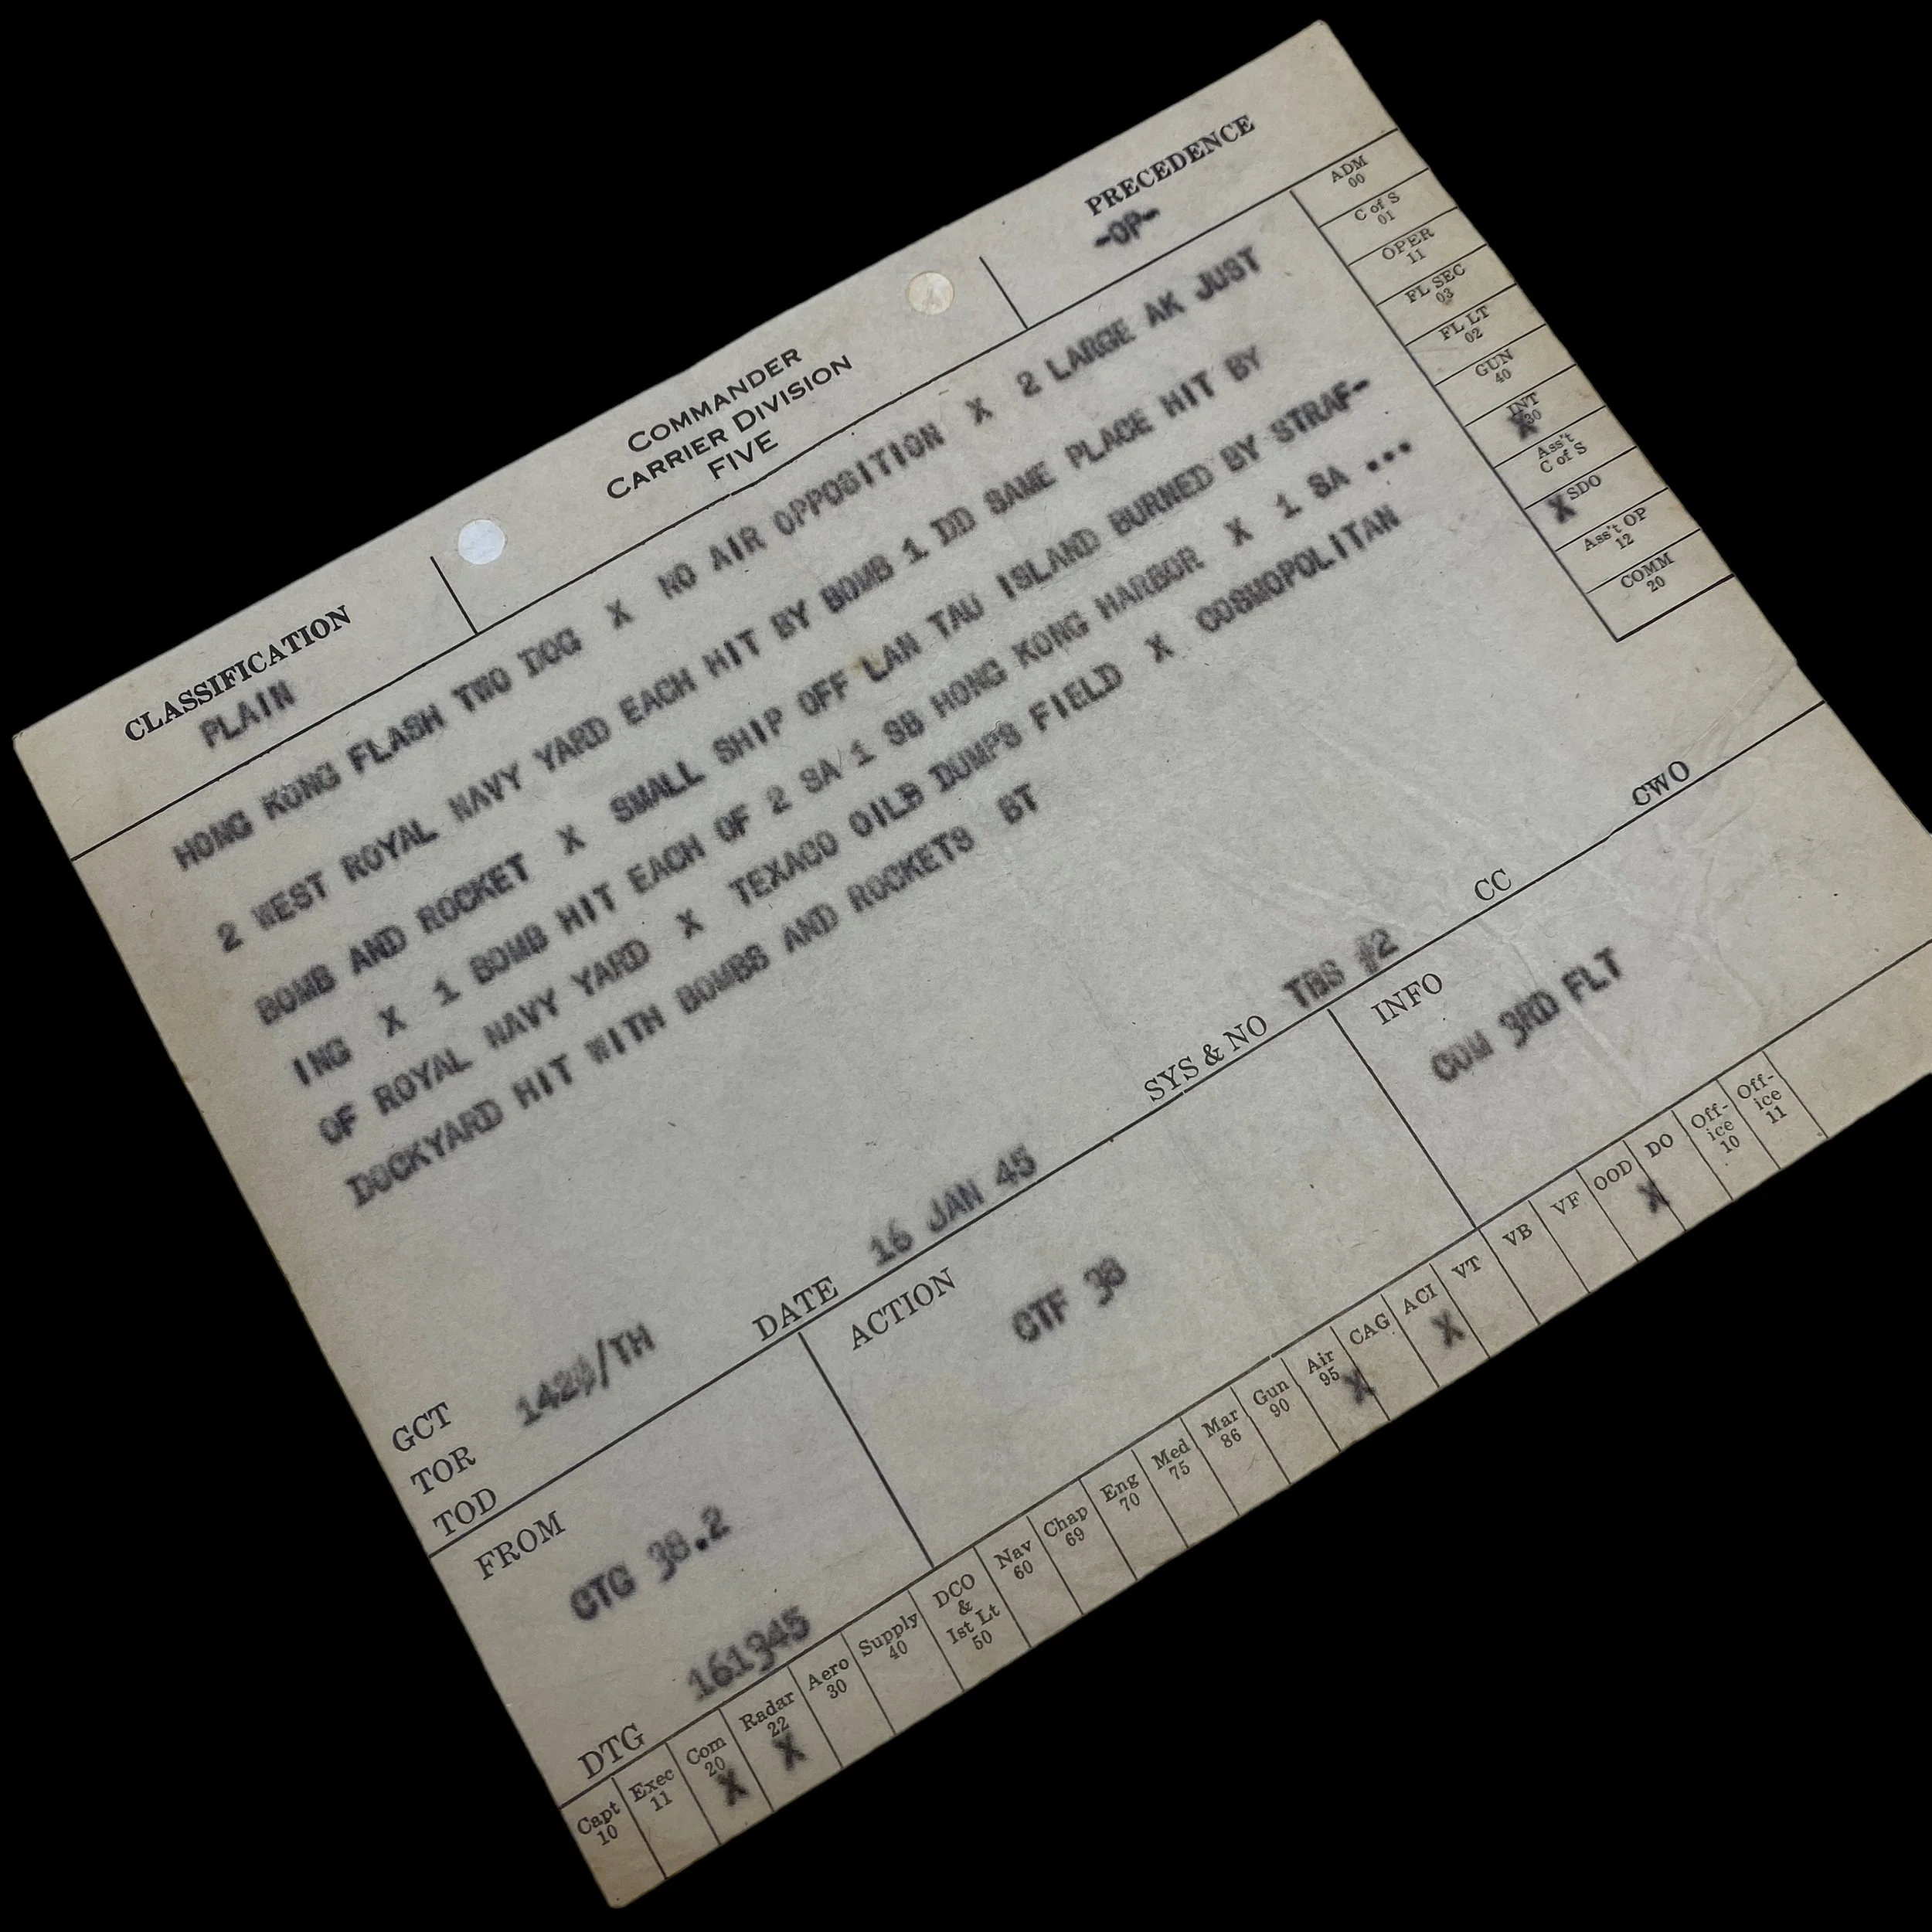 COMMANDER
CARRIER DIVISION
FIVE
CLASSIFICATION
PLAIN
PRECEDENCE
-OP-
HONG KONG FLASH TWO DOG X NO AIR OPPOSITION X 2 LARGE AK JUST
2 WEST ROYAL NAVY YARD EACH HIT BY BOMB 1 DD SAME PLACE HIT BY
BOMB AND ROCKET X SMALL SHIP OFF LAN TAU ISLAND BURNED BY STRAF-
ING X 1 BOMB HIT EACH OF 2 SA 1 SB HONG KONG HARBOR X 1 SA ...
OF ROYAL NAVY YARD X TEXACO OIL DUMPS FIELD X COSMOPOLITAN
DOCKYARD HIT WITH BOMBS AND ROCKETS BT
ADM
00
C of S
01
OPER
11
FL SEC
03
FL LT
02
GUN
40
INT
30
X
Ass't
C of S
SDO
X
Ass't OP
12
COMM
20
GCT 1420/TH
TOR
TOD
DATE 16 JAN 45
SYS & NO TBS #2
CC
CWO
FROM
CTG 38.2
DTG 161345
ACTION
CTF 38
INFO
COM 3RD FLT
Capt
10
Exec
11
Com
20
X
Radar
22
X
Aero
30
Supply
40
DCO
&
1st Lt
50
Nav
60
Chap
69
Eng
70
Med
75
Mar
86
Gun
90
Air
95
X
CAG
ACI
X
VT
VB
VF
OOD
X
DO
Off-
ice
10
Off-
ice
11